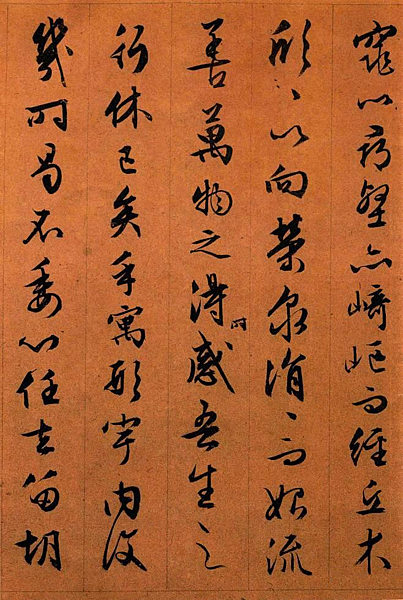 窕以尋壑亦崎嶇而經丘木
欣〻以向榮泉涓〻而始流
善萬物之得時感吾生之
行休已矣乎寓形宇内復
幾時曷不委心任去留胡